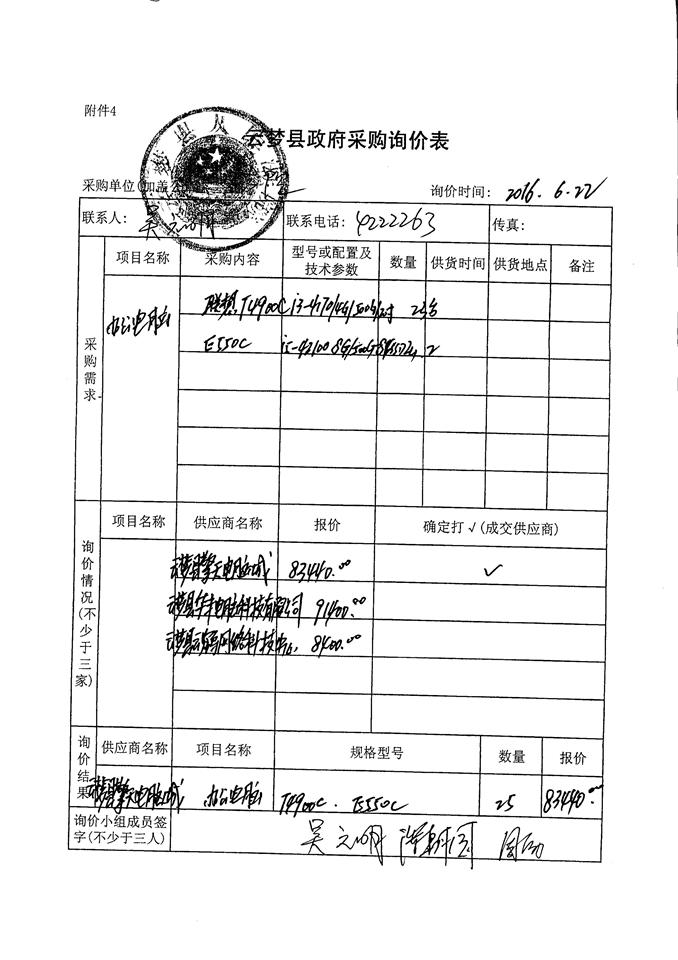 附件4
云梦县政府采购询价表
采购单位(加盖
询价时间: 2016.6.22
联系人: 吴元明 联系电话: 4222263 传真:
采购需求
项目名称 采购内容 型号或配置及技术参数 数量 供货时间 供货地点 备注
办公电脑 联想T4900C i3-4170/4G/500G/ 23台
E550C i5-4210U 8G/500G 2
询价情况(不少于三家)
项目名称 供应商名称 报价 确定打√(成交供应商)
云梦县擎天电脑城 83440.00 √
云梦县 科技有限公司 91400.00
云梦县 网络科技中心 8400.00
询价结果
供应商名称 项目名称 规格型号 数量 报价
云梦县擎天电脑城 办公电脑 T4900C. E550C 25 83440.00
询价小组成员签字(不少于三人) 吴元明